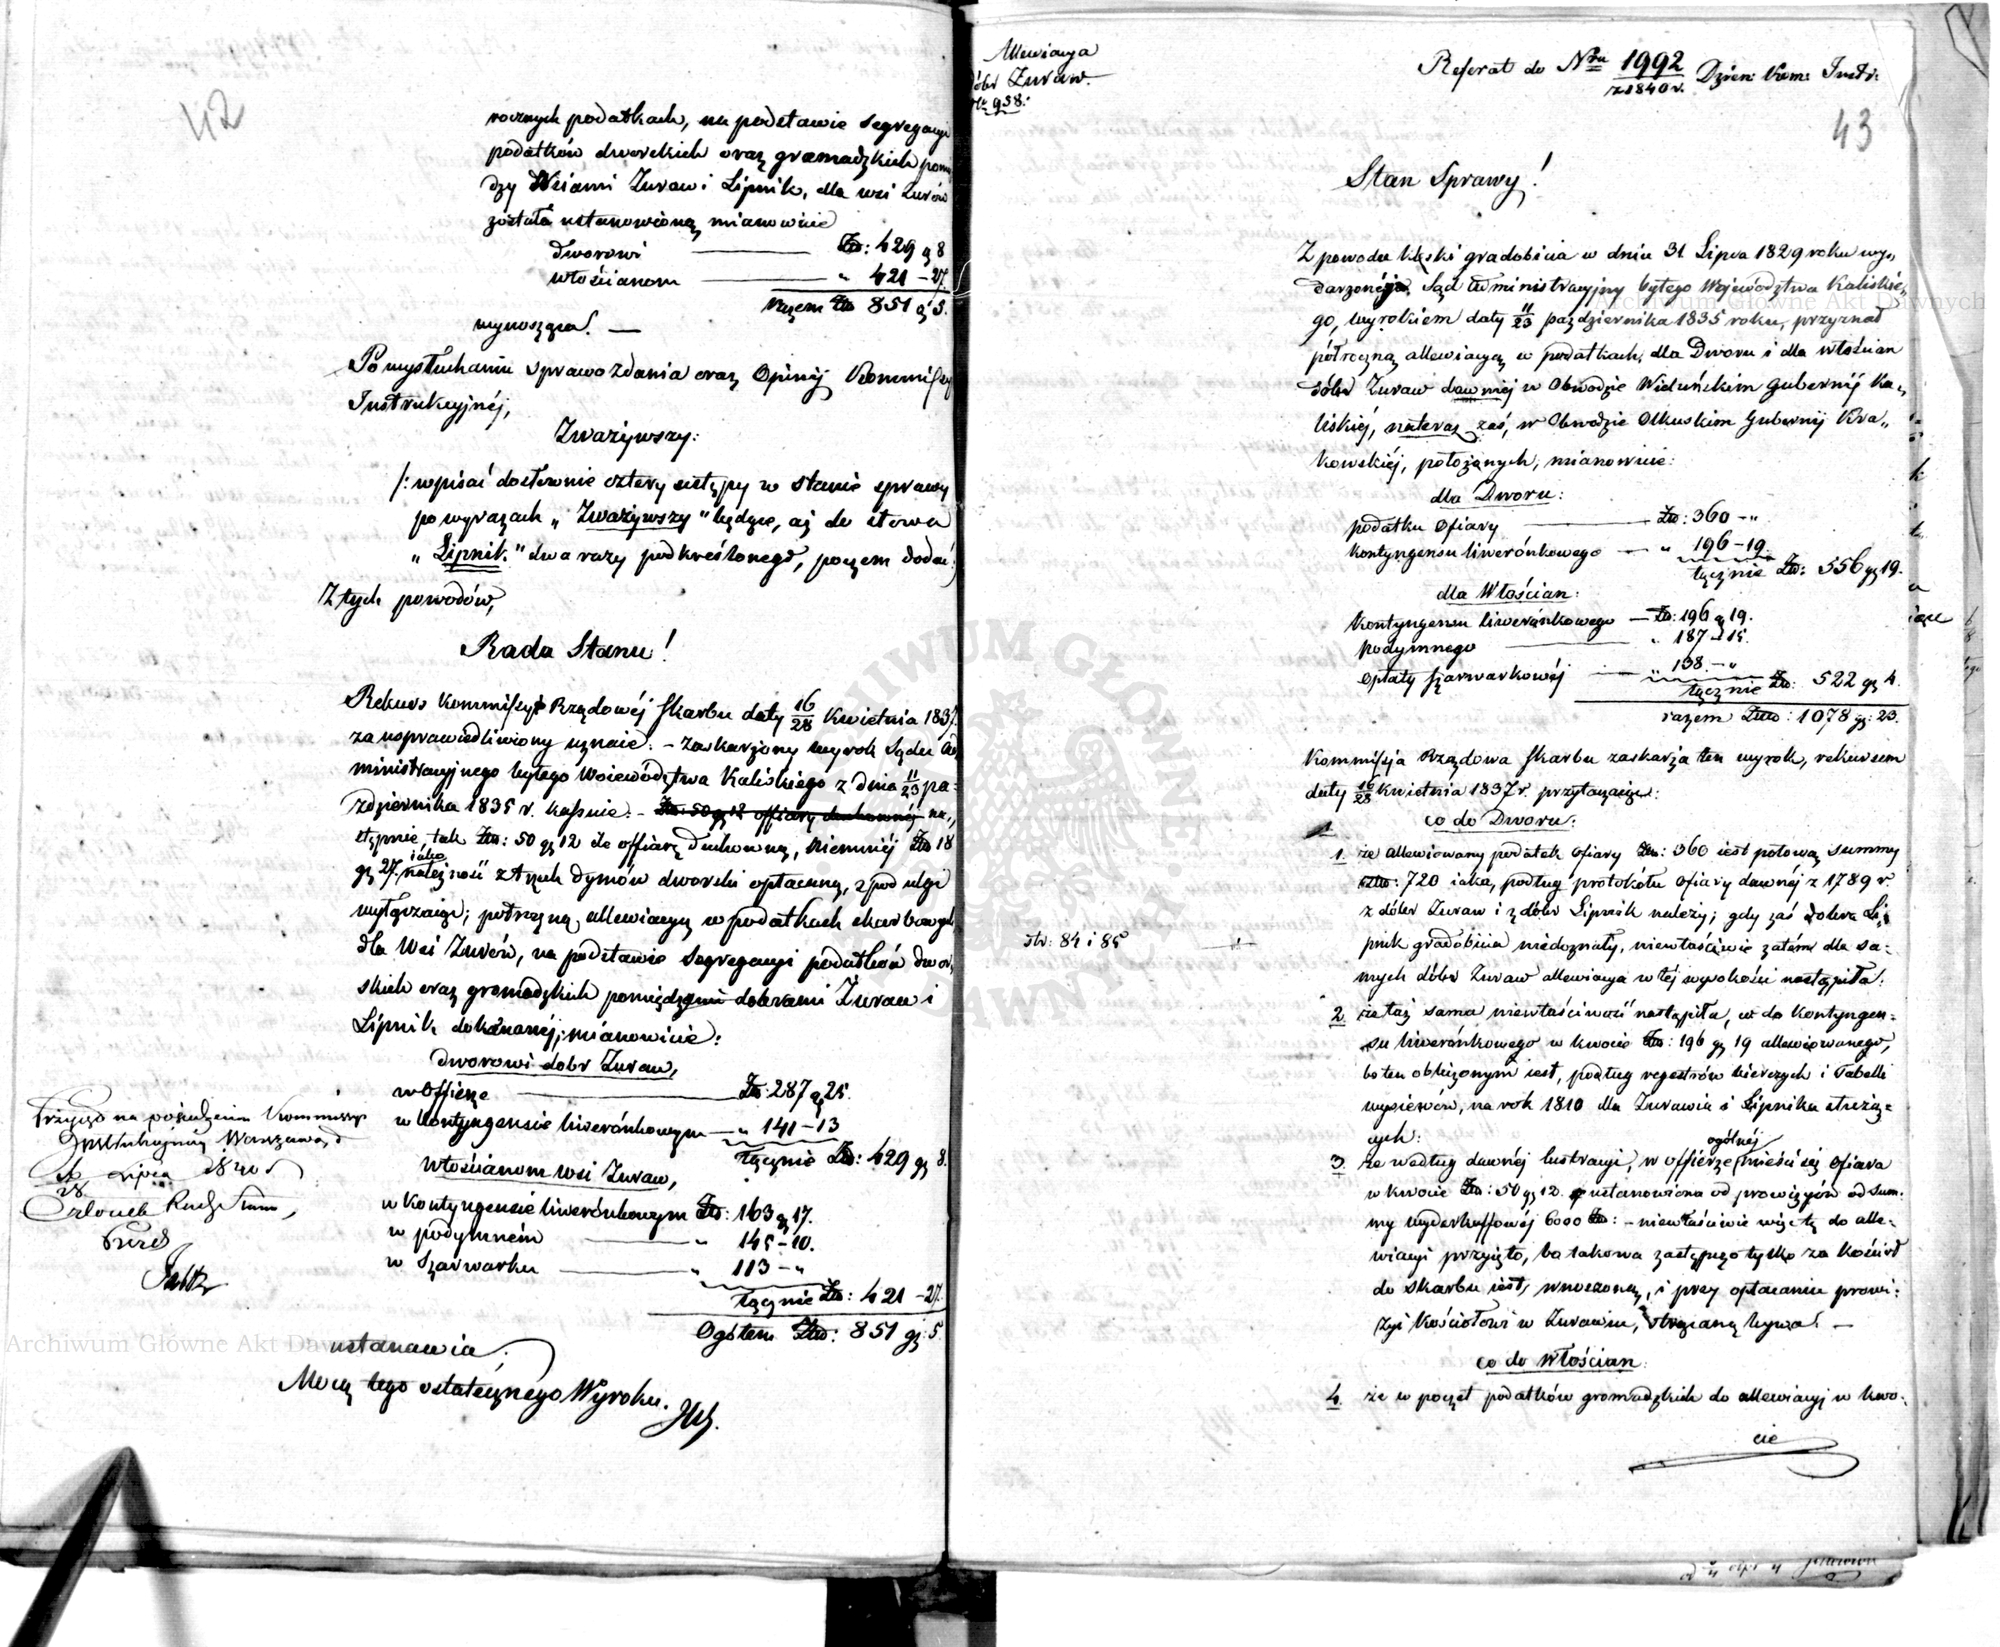 42
rocznych podatkach, na podstawie segregacyi
podatków dworskich oraz gromadzkich pomię
dzy Wsiami Żuraw i Lipnik, dla wsi Żuraw
została ustanowioną, mianowicie
dworowi — Złp: 429 g 8
włościanom — " 421 – 27.
razem Złp 851 g 5.
wynosząca. —
Po wysłuchaniu sprawozdania oraz Opinij Kommissyi
Instrukcyjnéj,
Zważywszy:
/: wpisać dosłownie cztery ustępy w stanie sprawy
po wyrazach „Zważywszy" będące, aż do słowa
„Lipnik." dwa razy podkreślonego, poczem dodać:/
Z tych powodów,
Rada Stanu!
Rekurs Kommissyi Rządowéj Skarbu daty 16/28 Kwietnia 1837.
za usprawiedliwiony uznaie: – zaskarżony wyrok Sądu Ad
ministracyjnego byłego Województwa Kaliskiego z dnia 11/23 pa-
ździernika 1835 r. kassuie: – Złp: 50 g 12 offiary duchownéj na„
stępnie, tak Złp: 50 gr 12 ile offiarę duchowną, niemniéj Złp 18
gr 27. iako należność z tych dymów dworski opłacaną, z pod ulgi
wyłączaiąc; półroczną allewiacyą w podatkach skarbowych
dla Wsi Żuraw, na podstawie segregacyi podatków dwor„
skich oraz gromadzkich pomiędzy dobrami Żuraw i
Lipnik dokonanéj, mianowicie:
dworowi dobr Żuraw,
w Offierze — Złp: 287 g 25.
w kontyngensie liwerónkowym — " 141 – 13
łącznie Złp: 429 gr 8.
Włościanom wsi Żuraw,
w kontyngensie liwerónkowym Złp: 163 g 17.
w podymném — " 145 – 10.
w Szarwarku — " 113 – "
łącznie Złp: 421 – 27.
Ogółem Złp: 851 gr: 5.
ustanawia.
Mocą tego ostatecznego Wyroku.
Przyjęto na posiedzeniu Kommissyi
Instrukcyjnéj Warszawa d
Lipca 1840 r
28
Członek Rady Stanu,
Allewiacya
dóbr Żuraw.
Nr 958.
Referat do Nru 1992 Dzien: Kom: Instr:
z 1840 r.
43
Stan Sprawy!
Z powodu klęski gradobicia w dniu 31 Lipca 1829 roku wy„
darzonéj, Sąd Administracyjny byłego Województwa Kaliskie„
go, wyrokiem daty 11/23 października 1835 roku, przyznał
półroczną allewiacyą w podatkach, dla Dworu i dla włościan
dóbr Żuraw dawniéj w Obwodzie Wieluńskim Gubernij Ka„
liskiéj, na teraz zaś, w Obwodzie Olkuskim Gubernij Kra„
kowskiéj, położonych, mianowicie:
dla Dworu:
podatku Ofiary — Złp: 360 – "
kontyngensu liwerónkowego — " 196 – 19.
łącznie Złp: 556 gr 19.
dla Włościan:
kontyngensu liwerónkowego — Złp: 196 g 19.
podymnego — " 187 – 15.
opłaty szarwarkowéj — " 138. – "
łącznie Złp: 522 gr 4.
razem Złp: 1078 g: 23.
Kommissja Rządowa Skarbu zaskarża ten wyrok, rekursem
daty 16/28 Kwietnia 1837 r. przytaczaiąc:
co do Dworu:
1. że allewiowany podatek Ofiary Złp: 360 iest połową summy
Złp: 720 iaka, podług protokółu Ofiary dawnéj z 1789 r.
z dóbr Żuraw i z dóbr Lipnik należy; gdy zaś dobra Li„
pnik gradobicia niedoznały, niewłaściwie zatém dla sa-
mych dóbr Żuraw allewiacya w téj wysokości nastąpiła.
str: 84 i 85
2. że taż sama niewłaściwość nastąpiła, co do kontyngen-
su liwerónkowego w kwocie Złp: 196 gr 19 allewiowanego,
bo ten obliczonym iest, podług regestrów bierczych i Tabelli
wysiewów, na rok 1810 dla Żurawia i Lipnika służą-
cych:
3. że według dawnéj lustracyi, w offierze ogólnéj mieści się Ofiara
w kwocie Złp: 50 gr 12. ustanowiona od prowizyów od Sum-
my wyderkaffowéj 6000 Złp: – niewłaściwie więc tę do alle-
wiacyi przyięto, bo takowa zastępczo tylko za kościół
do skarbu iest, wnoszoną, i przy opłacaniu prowi-
zyi Kościołowi w Żurawiu, strącaną bywa. —
co do Włościan:
4. że w poczet podatków gromadzkich do allewiacyi w kwo-
cie